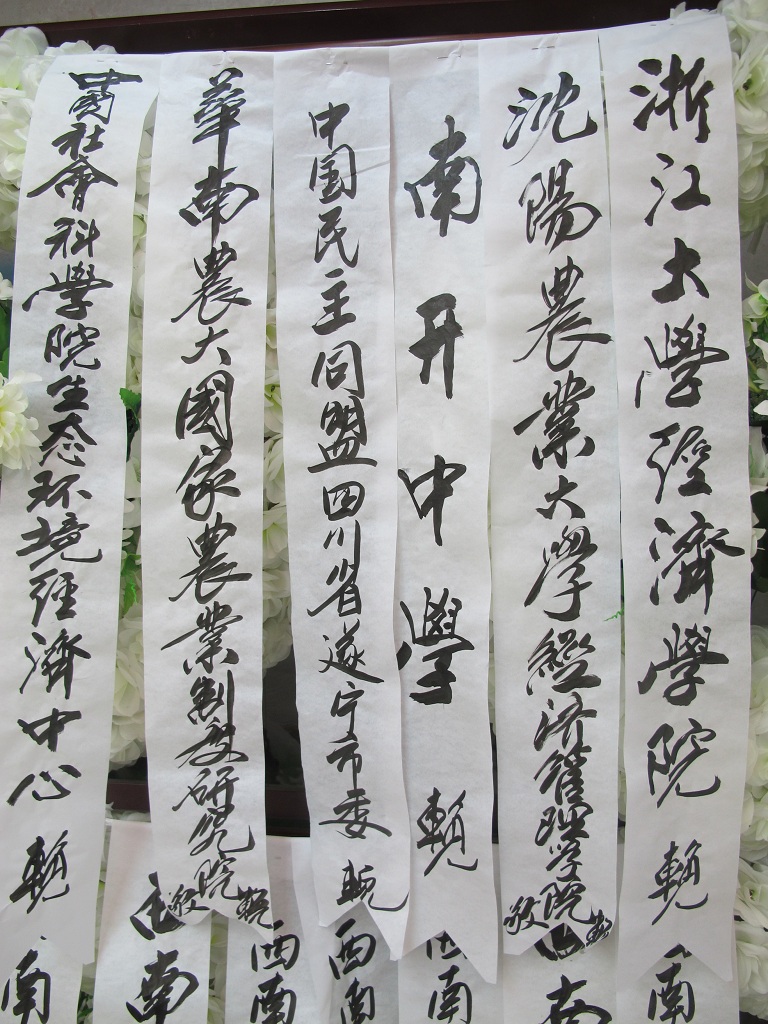 浙江大學経濟學院 輓
沈陽農業大學經济管理学院 敬輓
南开中學 輓
中国民主同盟四川省遂宁市委 輓
華南農大國家農業制度研究院 敬輓
中國社會科學院生态环境経濟中心 輓
南
南
西南
西南
西南
南
南